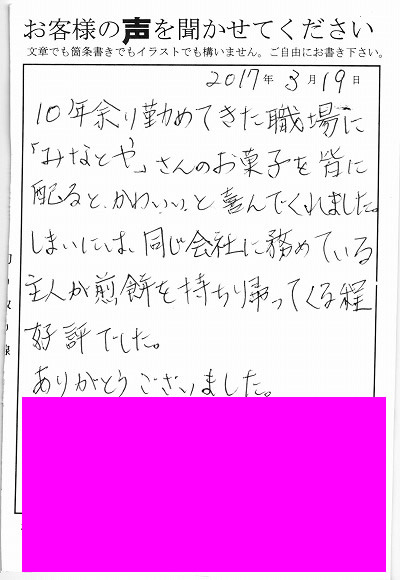 お客様の声を聞かせてください
文章でも箇条書きでもイラストでも構いません。ご自由にお書き下さい。
2017年 3月19日
10年余り勤めてきた職場に
「みなとや」さんのお菓子を皆に
配ると、かわいい、と喜んでくれました。
しまいには、同じ会社に務めている
主人が煎餅を持ち帰ってくる程
好評でした。
ありがとうございました。